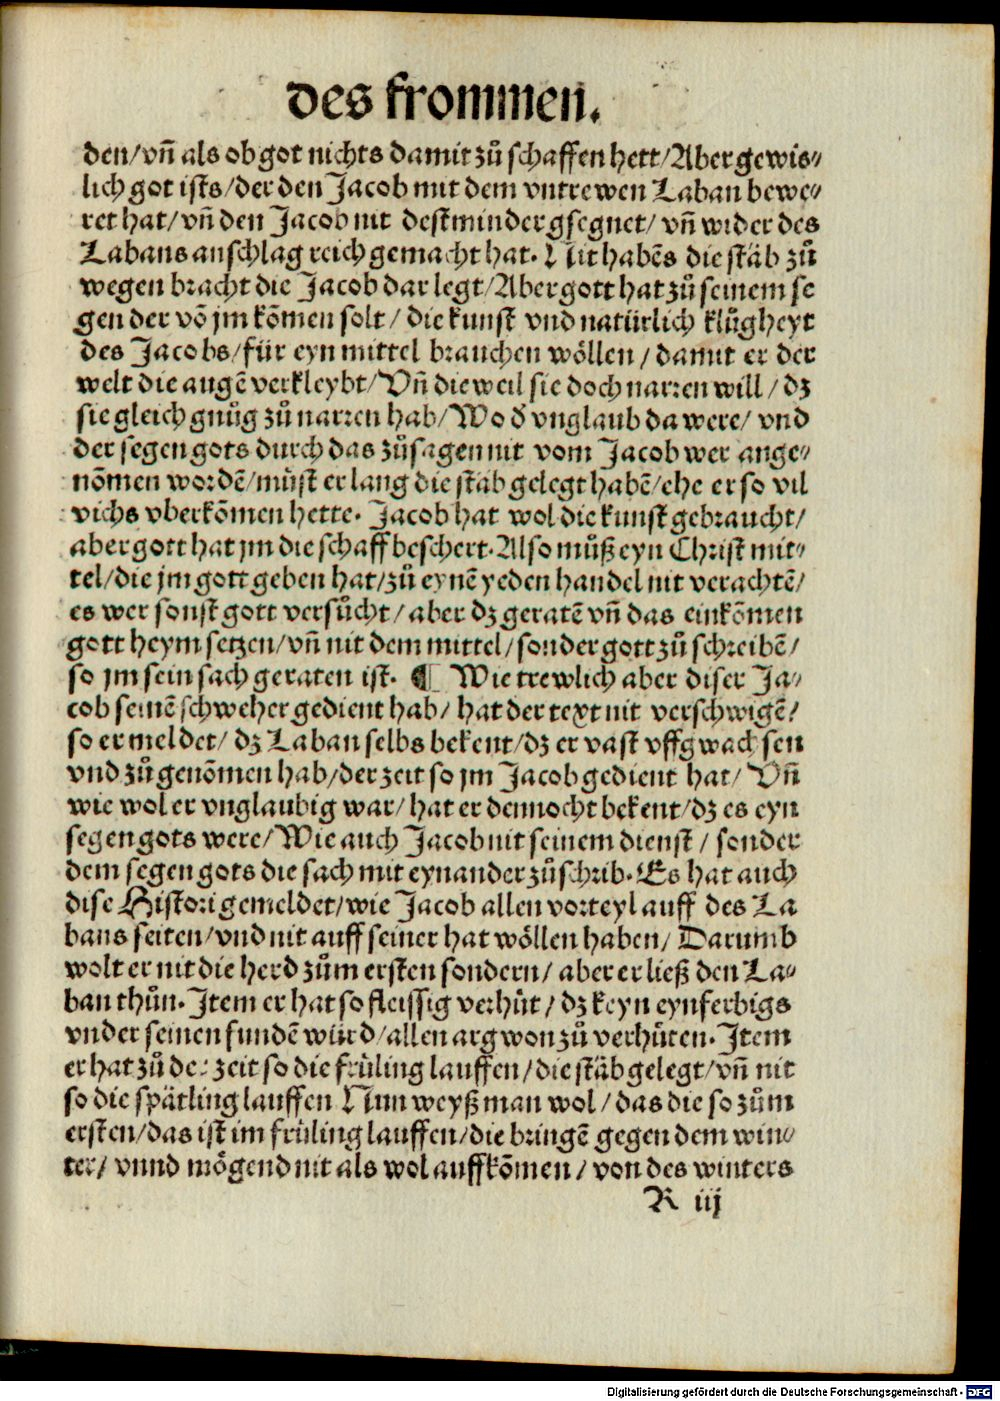 des frommen.
den/ vn̄ als ob got nichts damit zů schaffen hett/ Aber gewis⸗
lich got ists/ der den Jacob mit dem vntrewen Laban bewe⸗
ret hat/ vn̄ den Jacob nit destminder gsegnet/ vn̄ wider des
Labans anschlag reich gemacht hat. Nit habēs die stäb zů
wegen bracht die Jacob dar legt/ Aber gott hat zů seinem se
gen der vō jm kōmen solt/ die kunst vnd natürlich klůgheyt
des Jacobs/ für eyn mittel brauchen wöllen/ damit er der
welt die augē verkleybt/ Vn̄ die weil sie doch narren will/ dz
sie gleich gnůg zů narren hab/ Wo d̓ vnglaub da were/ vnd
der segen gots durch das zůsagen nit vom Jacob wer ange⸗
nōmen wordē/ müst er lang die stäb gelegt habē/ ehe er so vil
vichs vberkōmen hette. Jacob hat wol die kunst gebraucht/
aber gott hat jm die schaff beschert. Also můß eyn Christ mit⸗
tel/ die jm gott geben hat/ zů eynē yeden handel nit verachtē/
es wer sonst gott versůcht/ aber dz geratē vn̄ das einkōmen
gott heym setzen/ vn̄ nit dem mittel/ sonder gott zů schreibē/
so jm sein sach geraten ist. ¶ Wie trewlich aber diser Ja⸗
cob seinē schweher gedient hab/ hat der text nit verschwigē/
so er meldet/ dz Laban selbs bekent/ dz er vast vffgwachsen
vnd zůgenōmen hab/ der zeit so jm Jacob gedient hat/ Vn̄
wie wol er vnglaubig war/ hat er dennocht bekent/ dz es eyn
segen gots were/ Wie auch Jacob nit seinem dienst/ sonder
dem segen gots die sach mit eynander zůschrib. Es hat auch
dise Histori gemeldet/ wie Jacob allen vorteyl auff des La
bans seiten/ vnd nit auff seiner hat wöllen haben/ Darumb
wolt er nit die herd zům ersten sondern/ aber er ließ den La⸗
ban thůn. Item er hat so fleissig verhüt/ dz keyn eynferbigs
vnder seinen fundē würd/ allen argwon zů verhüten. Item
er hat zů der zeit so die früling lauffen/ die stäb gelegt/ vn̄ nit
so die spätling lauffen Nun weyß man wol/ das die so zům
ersten/ das ist im früling lauffen/ die bringē gegen dem win⸗
ter/ vnnd mögend nit als wol auffkōmen/ von des winters
R iij
Digitalisierung gefördert durch die Deutsche Forschungsgemeinschaft - DFG